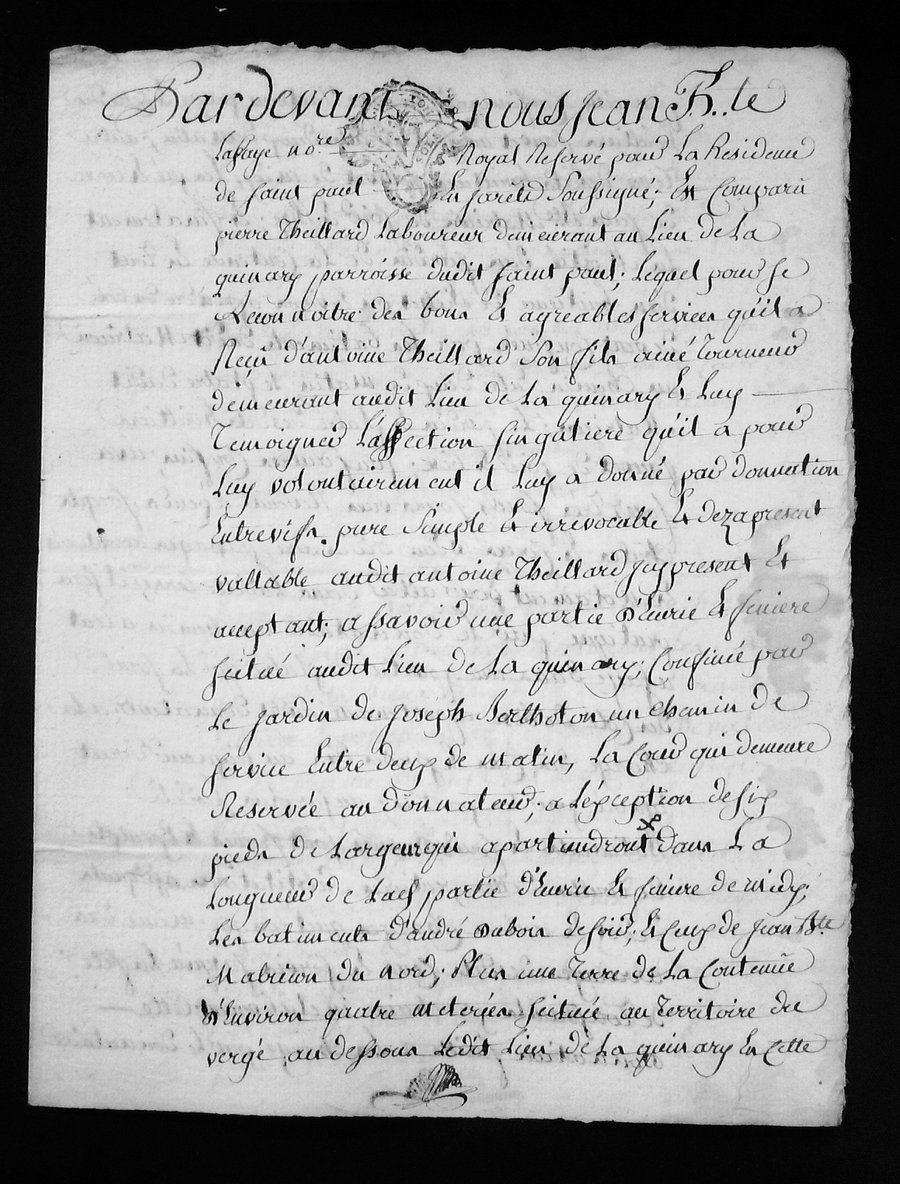 Pardevant nous Jean Bte
Lassaye nore Royal Reservé pour La Residence
de saint paul En jarêts soussigné; Est Comparu
pierre Theillard Laboureur demeurant au Lieu de La
quinary parroisse dudit saint paul; lequel pour se
Reconnoitre des bons Et agreables services qu'il a
Reçu d'antoine Theillard son fils ainé Tourneur
demeurant audit Lieu de La quinary Et Luy
Temoigner L'affection singuliere qu'il a pour
Luy volontairement il Luy a donné par donnation
Entrevifs pure simple Et irrevocable Et dezapresent
vallable audit antoine Theillard icy present Et
acceptant; a savoir une partie d'Eurie Et feniere
scitué audit Lieu de La quinary; Confinée par
Le jardin de joseph Berthoton un chemin de
service Entre deux de matin, La Cour qui demeure
Reservée au donnateur; a L'éxception de six
pieds de Largeur qui apartiendront dans La
Longueur de Lad partie d'Eurie Et feniere de midy;
Les batiments d'andré Dubois de soir; Et Ceux de jean Bte
Matricon du nord; Plus une Terre de La Contenüe
d'Environ quatre meterées scituée au Territoire du
vergé au dessous Ledit Lieu de La quinary En Cette